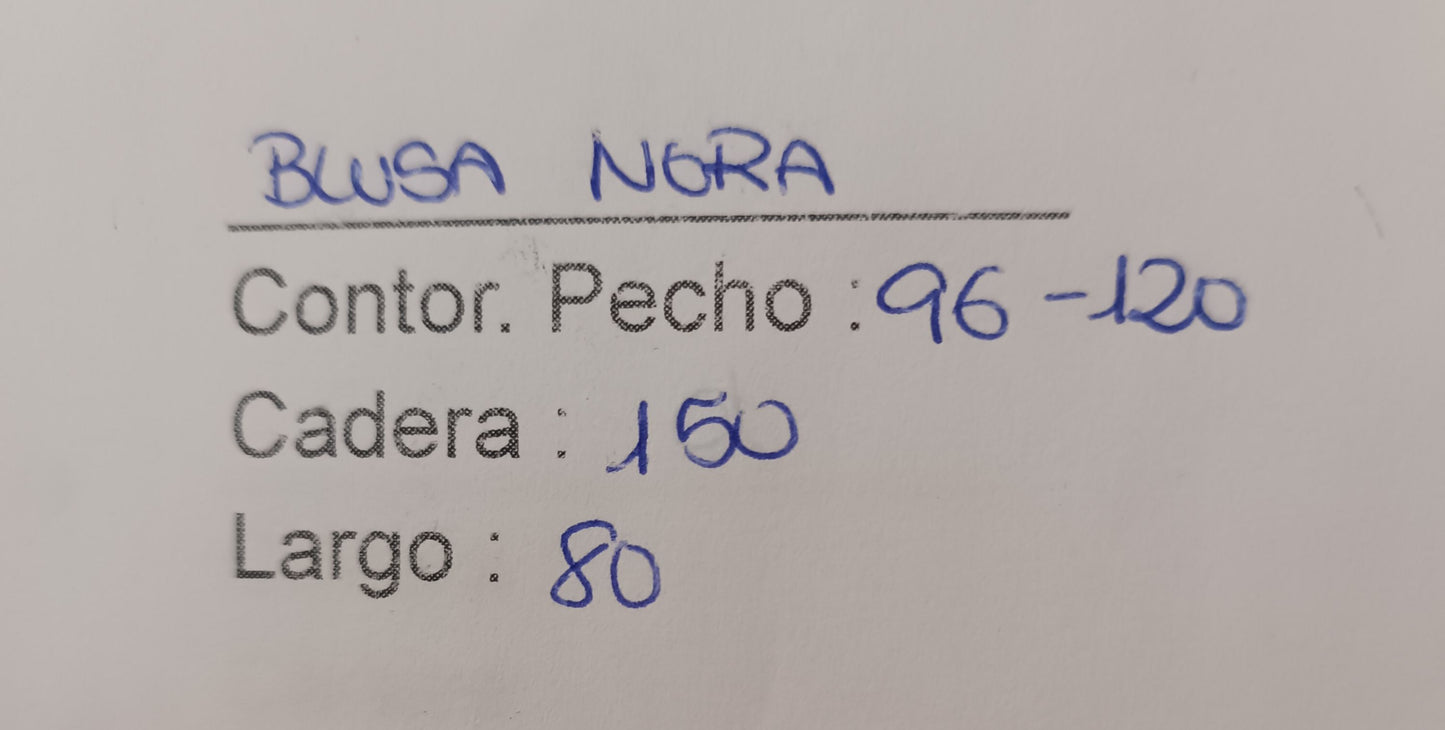 BLUSA NORA
Contor. Pecho : 96 - 120
Cadera : 150
Largo : 80